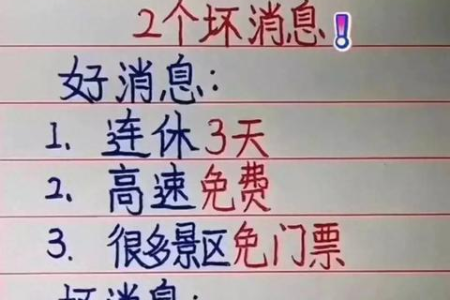 2个坏消息❗
好消息:
1. 连休3天
2. 高速免费
3. 很多景区免门票
坏消息: